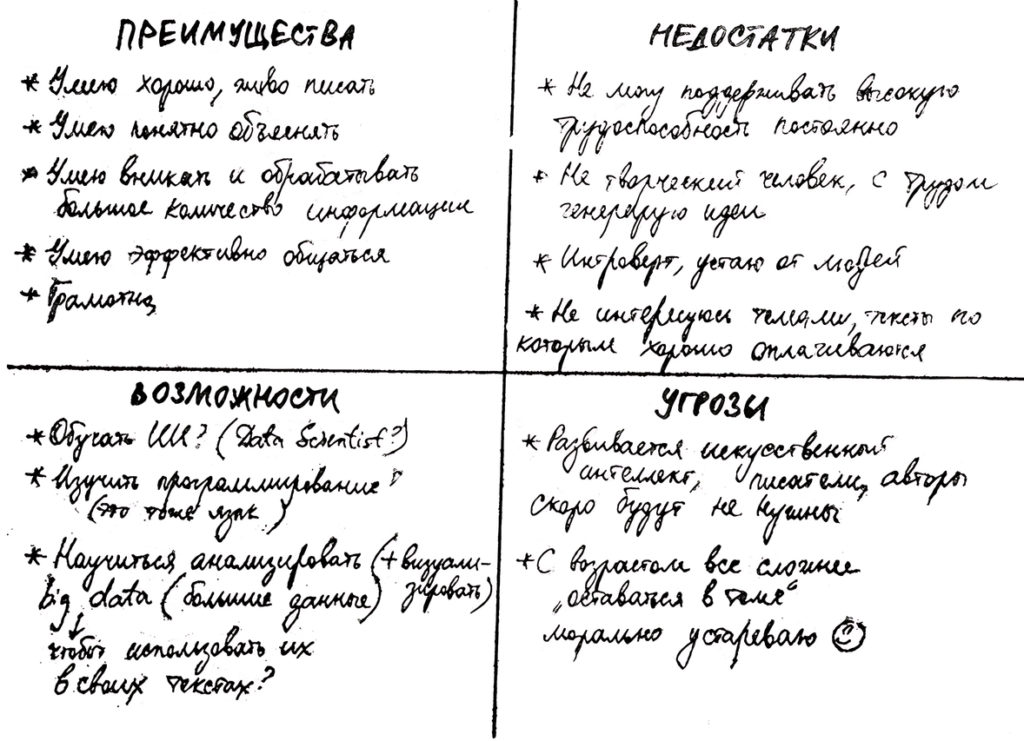 ПРЕИМУЩЕСТВА
* Умею хорошо, живо писать
* Умею понятно объяснять
* Умею вникать и обрабатывать
большое количество информации
* Умею эффективно общаться
* Грамотна
НЕДОСТАТКИ
* Не могу поддерживать высокую
трудоспособность постоянно
* Не творческий человек, с трудом
генерирую идеи
* Интроверт, устаю от людей
* Не интересуюсь темами, тексты по
которым хорошо оплачиваются
ВОЗМОЖНОСТИ
* Обучать ИИ? (Data Scientist?)
* Изучить программирование
(это тоже язык)
* Научиться анализировать (+ визуали-
зировать)
big data (большие данные)
чтобы использовать их
в своих текстах?
УГРОЗЫ
* Развивается искусственный
интеллект, писатели, авторы
скоро будут не нужны
* С возрастом все сложнее
„оставаться в теме“
морально устареваю